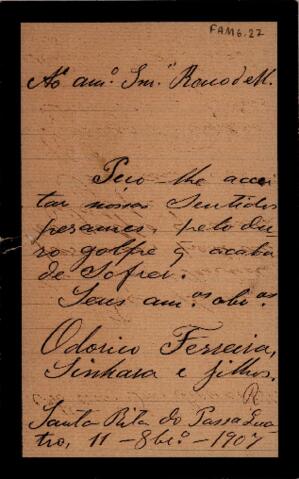 FAM6.27
Ao am.º Snr.
Peço-lhe accei
tar nossos Sentidos
pezames, pelo du
ro golpe q̃ acaba
de Sofrer.
Seus am.ºs obr.ºs
Odorico Ferreira,
Sinhara e filhos.
Santa Rita do Passa Qua
tro, 11-8br.º-1907